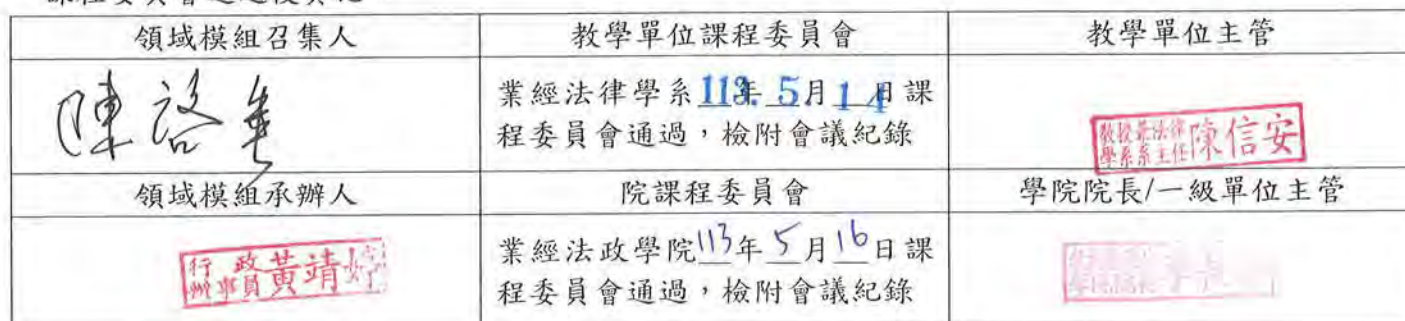 領域模組召集人
教學單位課程委員會
教學單位主管
陳
業經法律學系113年5月14日課
程委員會通過，檢附會議紀錄
教授兼法律
學系系主任
陳信安
領域模組承辦人
院課程委員會
學院院長/一級單位主管
行政
辦事員
黃靖
業經法政學院113年5月16日課
程委員會通過，檢附會議紀錄